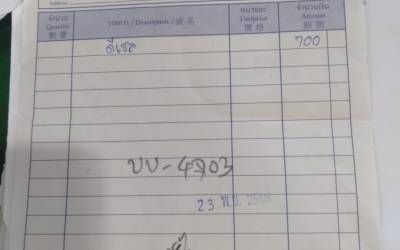 Address
จำนวน รายการ / Description / 號 名 หน่วยละ จำนวนเงิน
Quantity Unitprice Amount
數 量 價 格 銀 額
ดีเซล 700
บบ-4903
23 พ.ย.